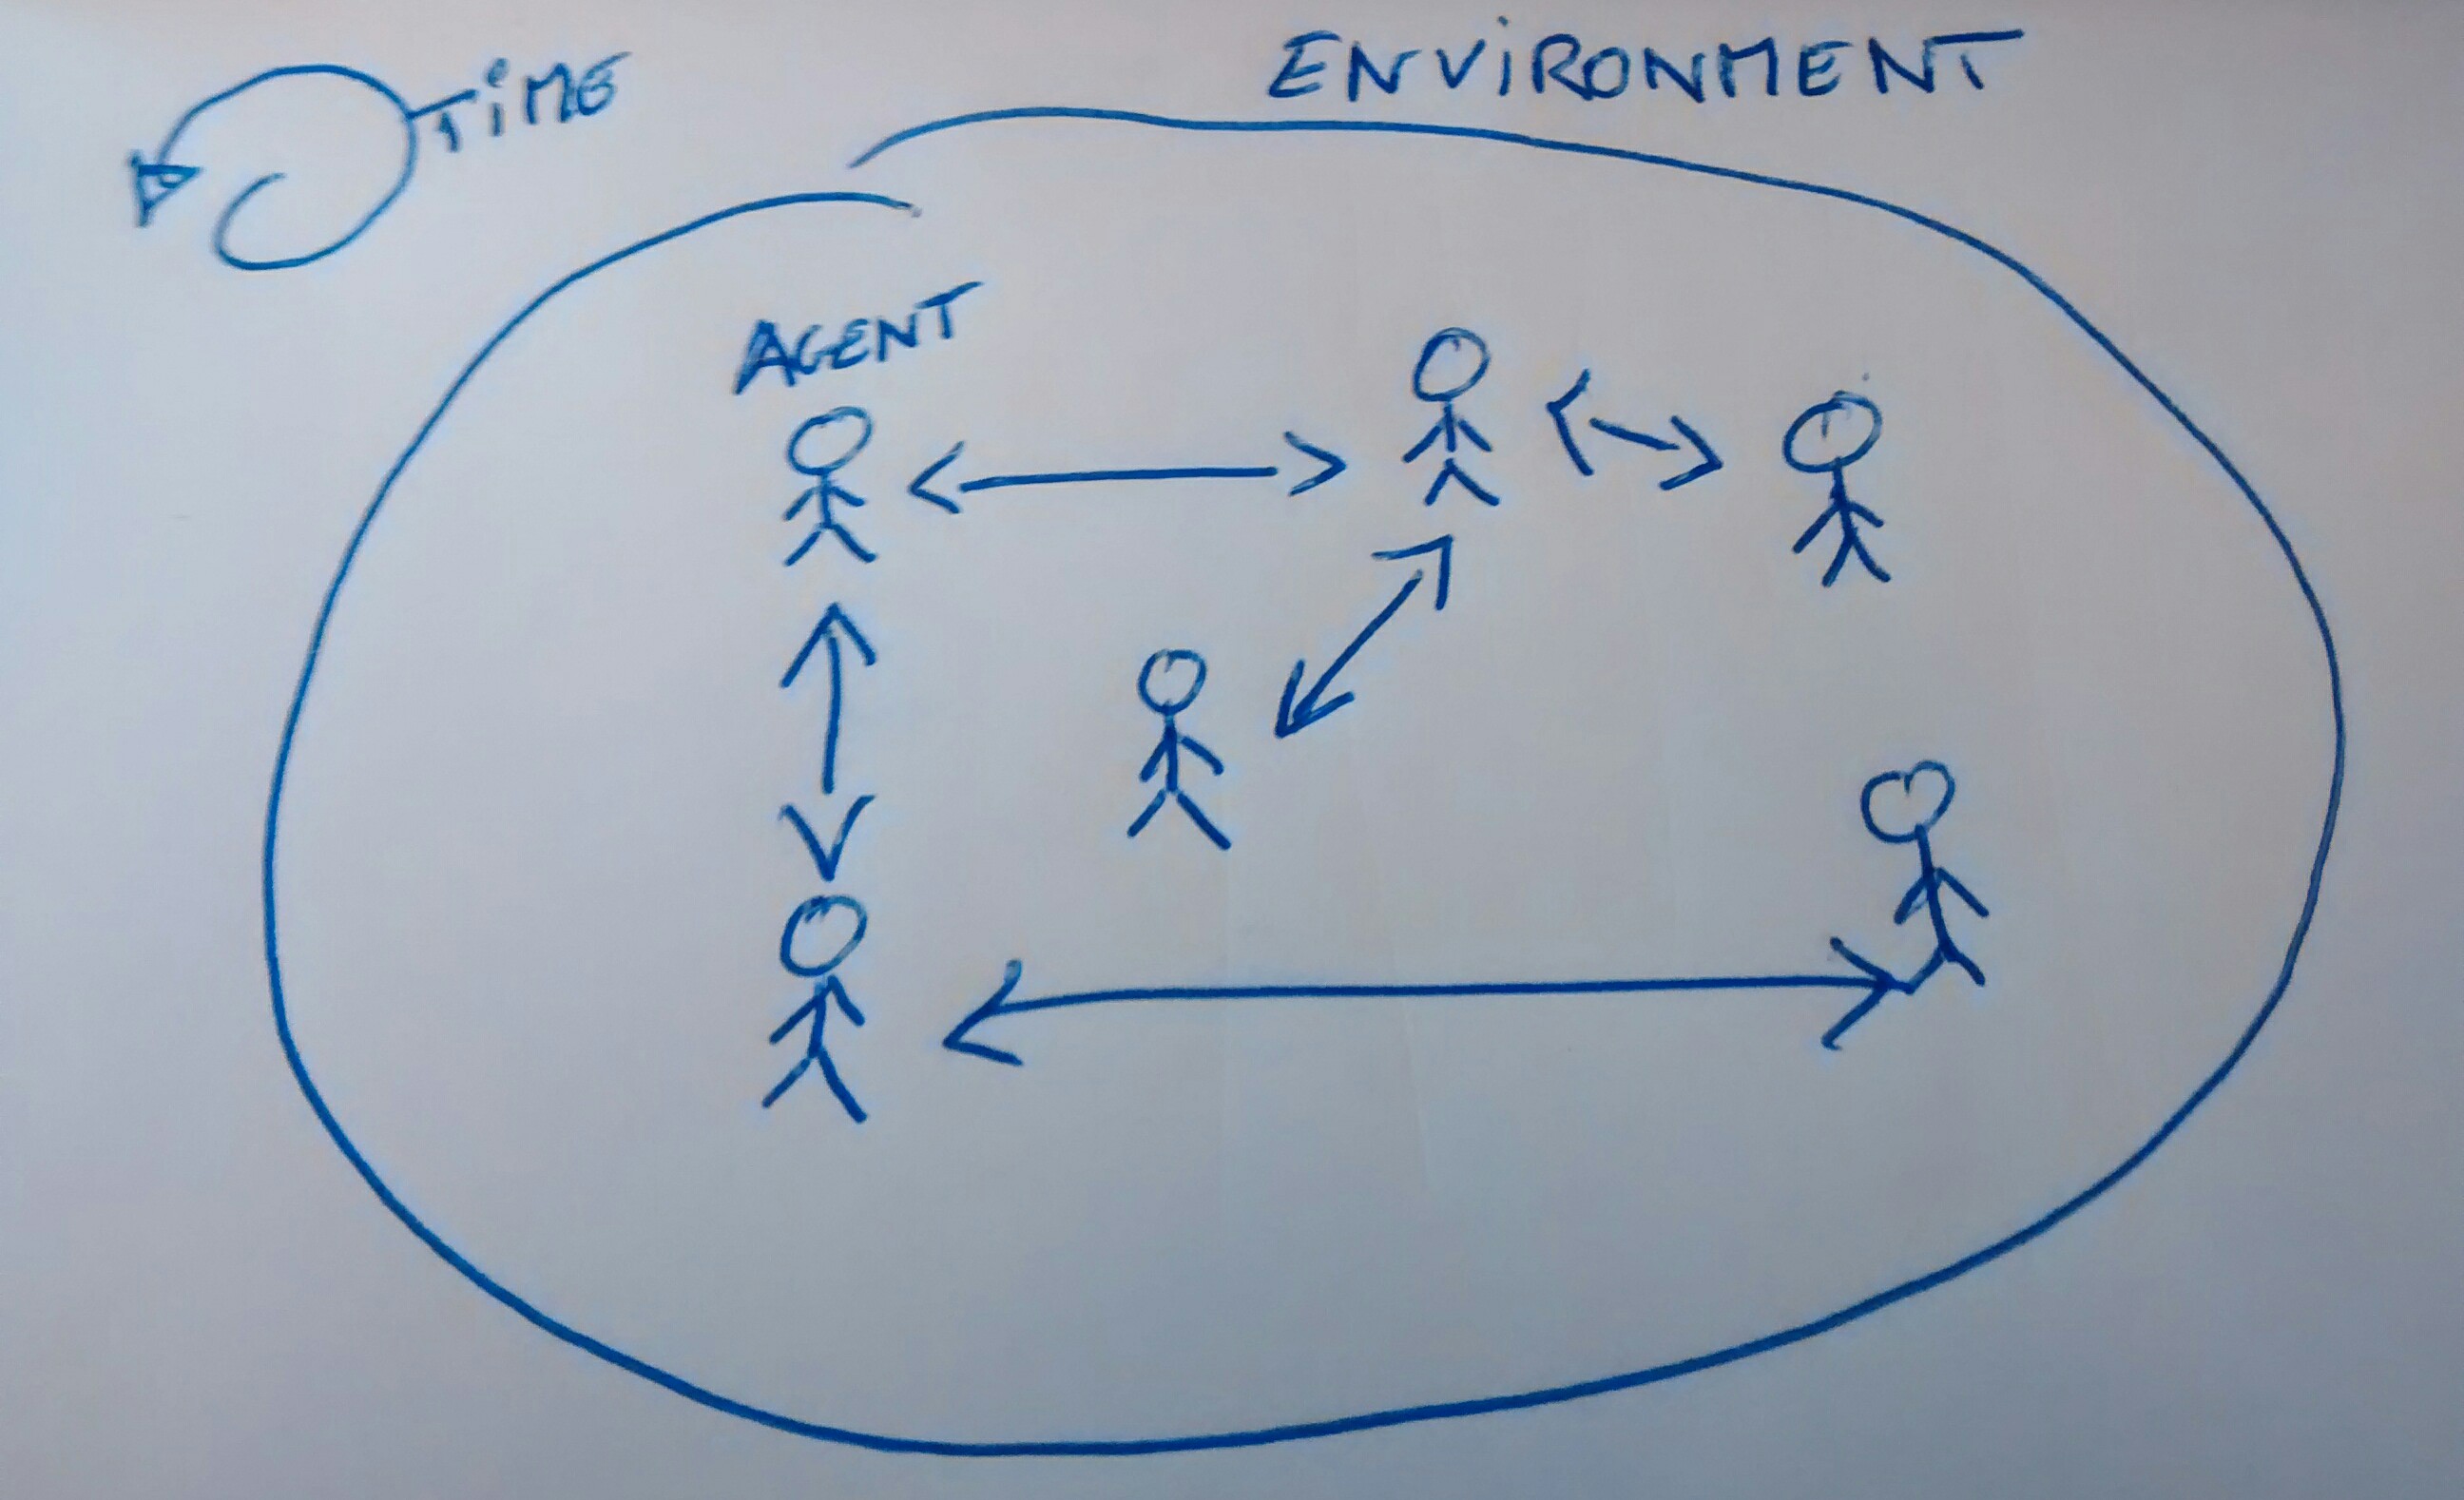 TiME
ENViRONMENT
AGENT